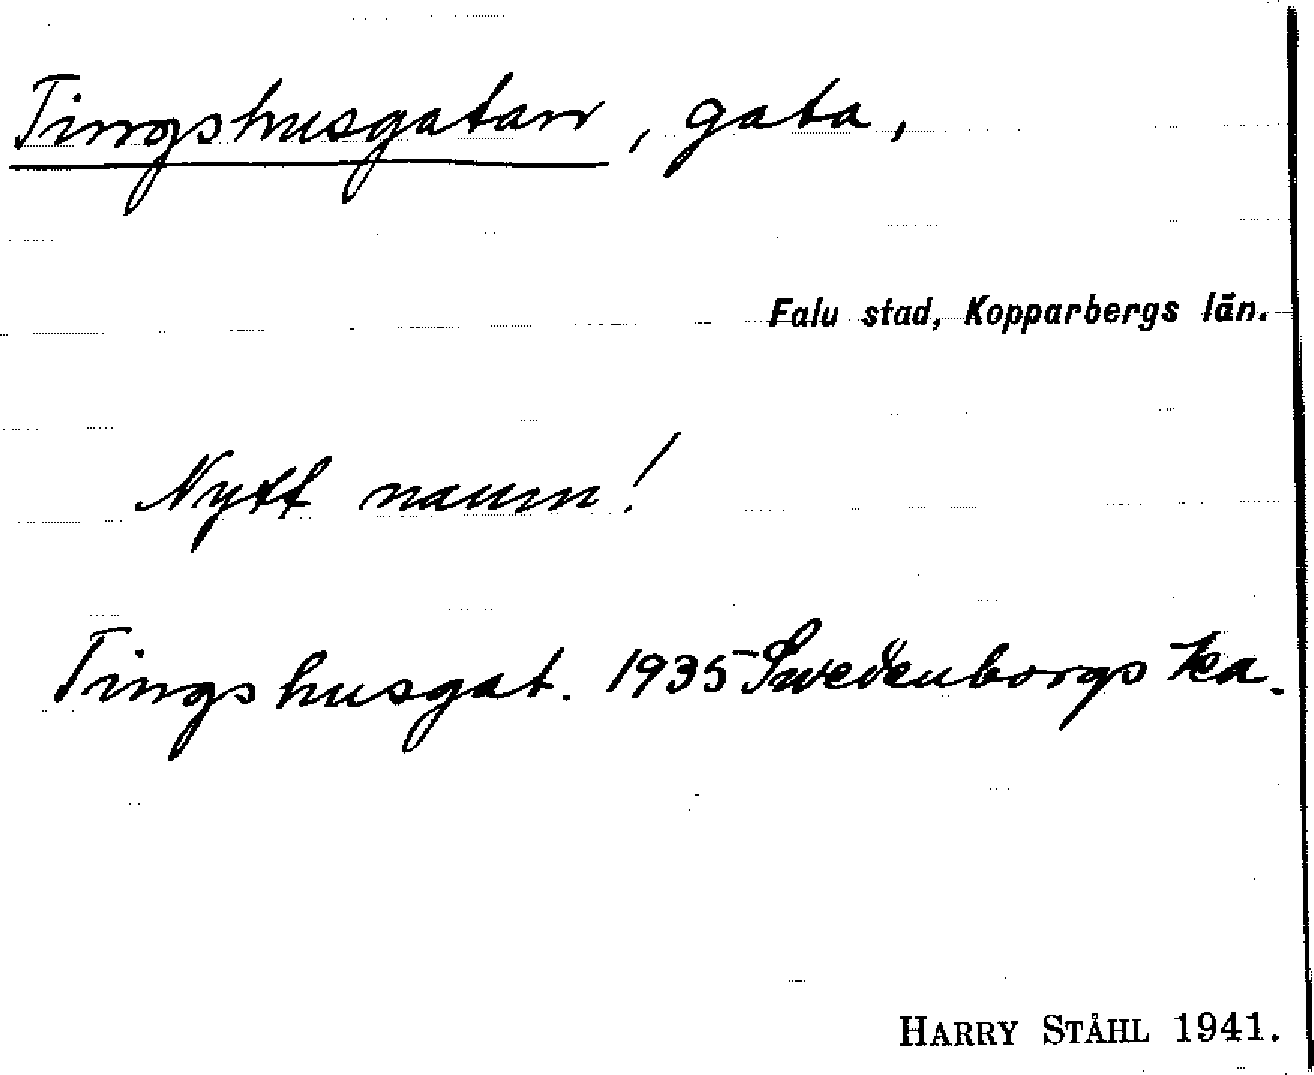 Tingshusgatan, gata,
Falu stad, Kopparbergs län.
Nytt namn!
Tingshusgat. 1935 Swedenborgs ka.
HARRY STÅHL 1941.